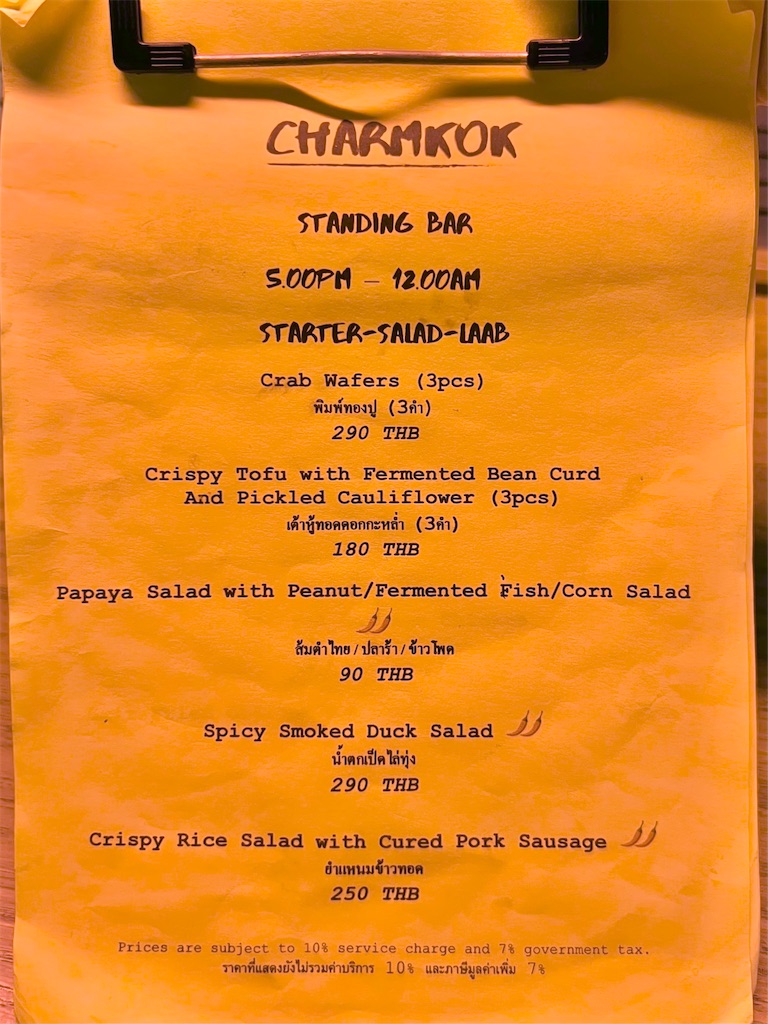 CHARMKOK
STANDING BAR
5.00PM – 12.00AM
STARTER-SALAD-LAAB
Crab Wafers (3pcs)
พิมพ์ทองปู (3คำ)
290 THB
Crispy Tofu with Fermented Bean Curd
And Pickled Cauliflower (3pcs)
เต้าหู้ทอดดอกกะหล่ำ (3คำ)
180 THB
Papaya Salad with Peanut/Fermented Fish/Corn Salad
ส้มตำไทย / ปลาร้า / ข้าวโพด
90 THB
Spicy Smoked Duck Salad
น้ำตกเป็ดไล่ทุ่ง
290 THB
Crispy Rice Salad with Cured Pork Sausage
ยำแหนมข้าวทอด
250 THB
Prices are subject to 10% service charge and 7% government tax.
ราคาที่แสดงยังไม่รวมค่าบริการ 10% และภาษีมูลค่าเพิ่ม 7%